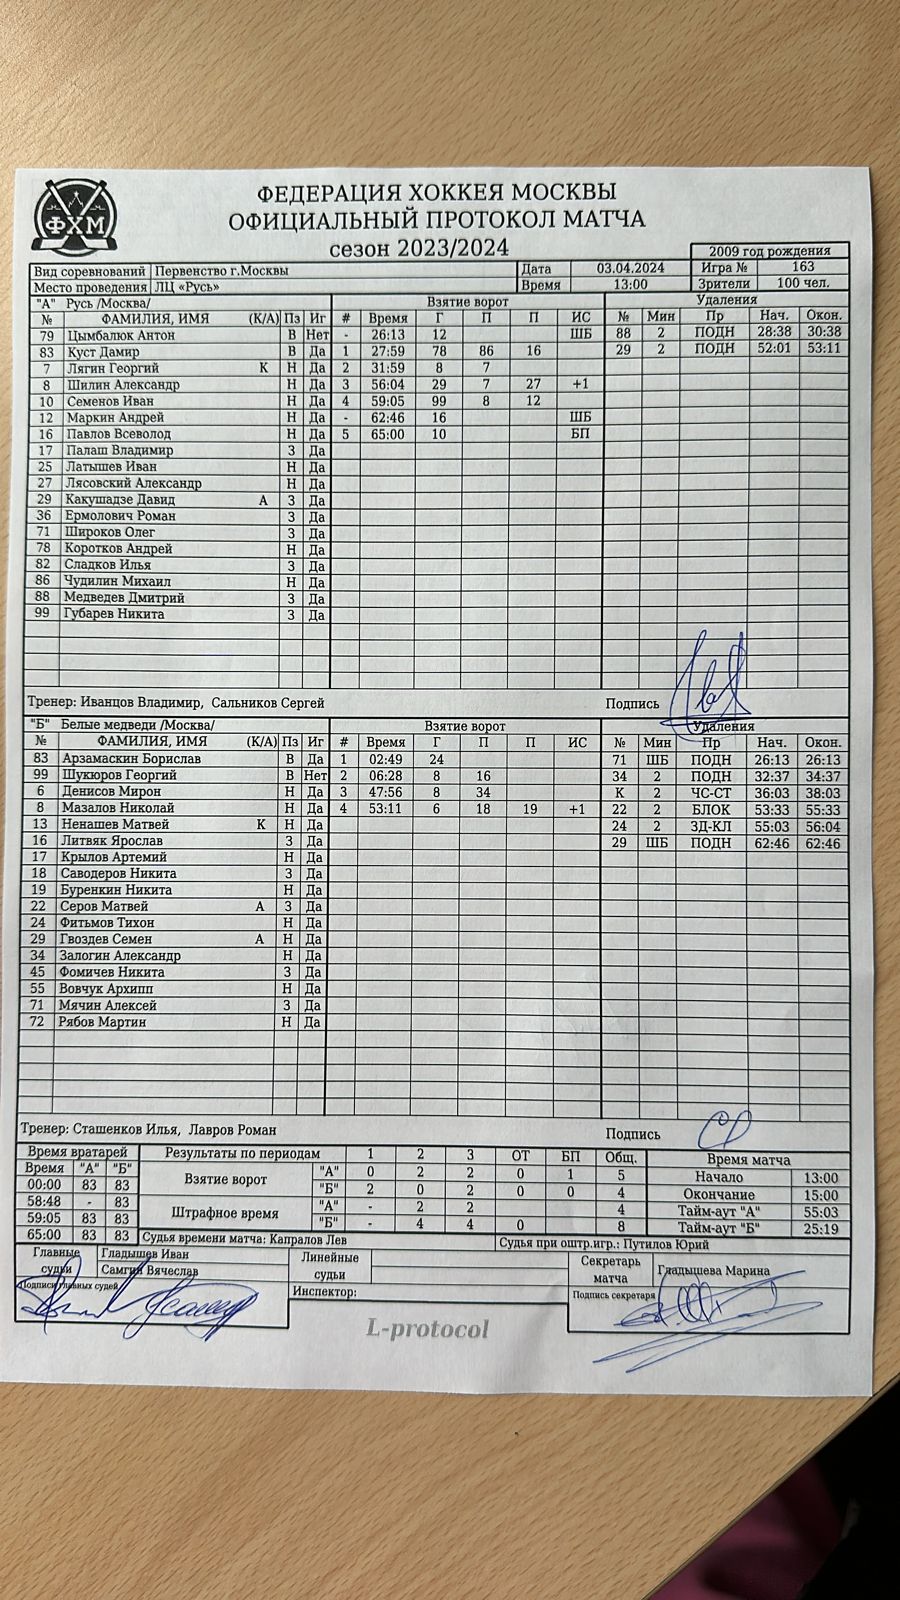 ФХМ
ФЕДЕРАЦИЯ ХОККЕЯ МОСКВЫ
ОФИЦИАЛЬНЫЙ ПРОТОКОЛ МАТЧА
сезон 2023/2024
2009 год рождения
Вид соревнований Первенство г.Москвы Дата 03.04.2024 Игра № 163
Место проведения ЛЦ «Русь» Время 13:00 Зрители 100 чел.
"А" Русь /Москва/ Взятие ворот Удаления
№ ФАМИЛИЯ, ИМЯ (К/А) Пз Иг # Время Г П П ИС № Мин Пр Нач. Окон.
79 Цымбалюк Антон В Нет - 26:13 12 ШБ 88 2 ПОДН 28:38 30:38
83 Куст Дамир В Да 1 27:59 78 86 16 29 2 ПОДН 52:01 53:11
7 Лягин Георгий К Н Да 2 31:59 8 7
8 Шилин Александр Н Да 3 56:04 29 7 27 +1
10 Семенов Иван Н Да 4 59:05 99 8 12
12 Маркин Андрей Н Да - 62:46 16 ШБ
16 Павлов Всеволод Н Да 5 65:00 10 БП
17 Палаш Владимир З Да
25 Латышев Иван Н Да
27 Лясовский Александр Н Да
29 Какушадзе Давид А З Да
36 Ермолович Роман З Да
71 Широков Олег З Да
78 Коротков Андрей Н Да
82 Сладков Илья З Да
86 Чудилин Михаил Н Да
88 Медведев Дмитрий З Да
99 Губарев Никита З Да
Тренер: Иванцов Владимир, Сальников Сергей Подпись
"Б" Белые медведи /Москва/ Взятие ворот Удаления
№ ФАМИЛИЯ, ИМЯ (К/А) Пз Иг # Время Г П П ИС № Мин Пр Нач. Окон.
83 Арзамаскин Борислав В Да 1 02:49 24 71 ШБ ПОДН 26:13 26:13
99 Шукюров Георгий В Нет 2 06:28 8 16 34 2 ПОДН 32:37 34:37
6 Денисов Мирон Н Да 3 47:56 8 34 К 2 ЧС-СТ 36:03 38:03
8 Мазалов Николай Н Да 4 53:11 6 18 19 +1 22 2 БЛОК 53:33 55:33
13 Ненашев Матвей К Н Да 24 2 ЗД-КЛ 55:03 56:04
16 Литвяк Ярослав З Да 29 ШБ ПОДН 62:46 62:46
17 Крылов Артемий Н Да
18 Саводеров Никита З Да
19 Буренкин Никита Н Да
22 Серов Матвей А З Да
24 Фитьмов Тихон Н Да
29 Гвоздев Семен А Н Да
34 Залогин Александр Н Да
45 Фомичев Никита З Да
55 Вовчук Архипп Н Да
71 Мячин Алексей З Да
72 Рябов Мартин Н Да
Тренер: Сташенков Илья, Лавров Роман Подпись
Время вратарей Результаты по периодам 1 2 3 ОТ БП Общ. Время матча
Время "А" "Б" Взятие ворот "А" 0 2 2 0 1 5 Начало 13:00
00:00 83 83 "Б" 2 0 2 0 0 4 Окончание 15:00
58:48 - 83 Штрафное время "А" - 2 2 4 Тайм-аут "А" 55:03
59:05 83 83 "Б" - 4 4 0 8 Тайм-аут "Б" 25:19
65:00 83 83 Судья времени матча: Капралов Лев Судья при оштр.игр.: Путилов Юрий
Главные судьи Гладышев Иван Линейные судьи Секретарь матча Гладышева Марина
Самгин Вячеслав
Подписи главных судей Инспектор: Подпись секретаря
L-protocol